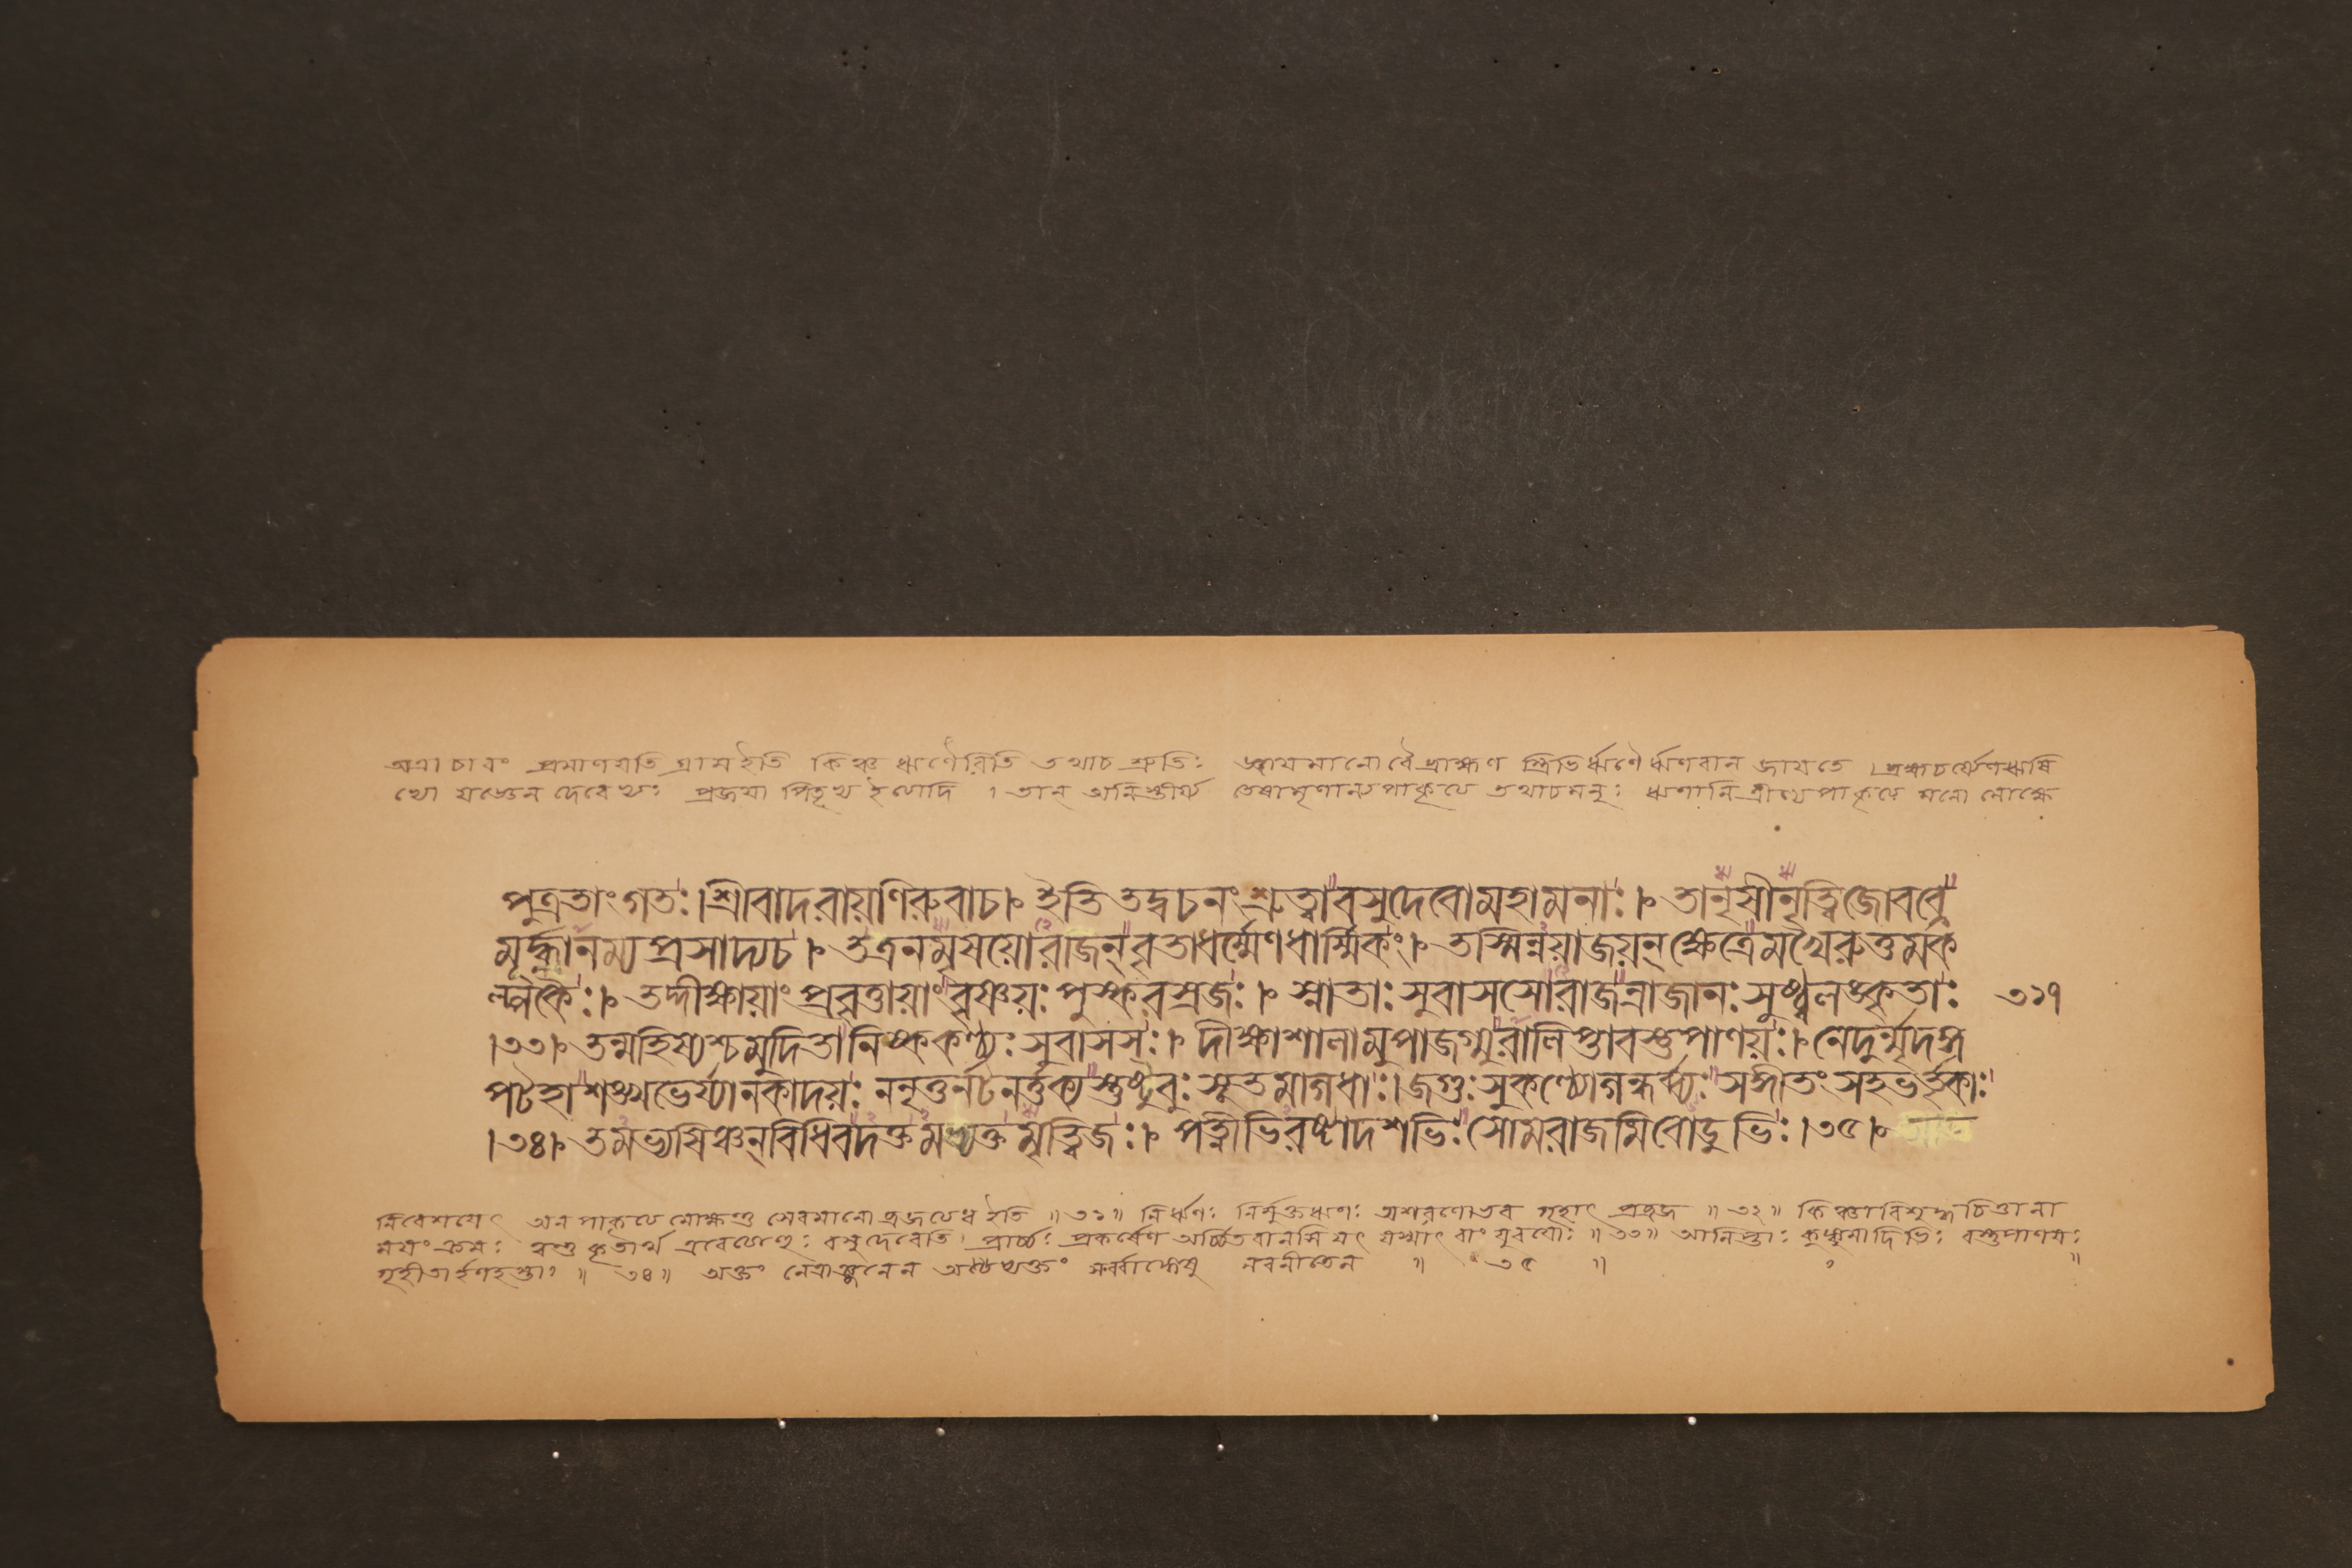 অত্রাচারং প্রমাণয়তি প্রাম ইতি কিঞ্চ ঋণৈরিতি তথাচ শ্রুতিঃ জায়মানো বৈ ব্রাহ্মণ স্ত্রিভির্ঋণৈ র্ঋণবান জায়তে । ব্রহ্মচর্য্যেণ ঋষি
ভ্যো যজ্ঞেন দেবেভ্যঃ প্রজয়া পিতৃভ্য ইত্যাদি । তান অনিস্তীর্য্য তেষামৃণান্যপাকৃত্য তথাচ মনুঃ ঋণানি ত্রীণ্যপাকৃত্য মনো মোক্ষে
পুত্রতাং গতঃ । শ্রীবাদরায়ণিরুবাচ । ইতি তদ্বচনং শ্রুত্বা বসুদেবো মহামনাঃ । তানৃষীনৃত্বিজো বব্রে
মূর্দ্ধ্নানম্য প্রসাদ্য চ । তত্রনমৃষয়ো রাজন্ বৃতা ধর্ম্মেণ ধার্ম্মিকং । তস্মিন্নয়াজয়ন্ ক্ষেত্রে মখৈরুত্তমক
ল্পকৈঃ । তদ্দীক্ষায়াং প্রবৃত্তায়াং বৃষ্ণয়ঃ পুষ্করস্রজঃ । স্নাতাঃ সুবাসসো রাজন্রাজানঃ সুষ্ঠ্বলঙ্কৃতাঃ ৩১৭
।৩৩। তন্মহিষ্যশ্চ মুদিতা নিষ্ককণ্ঠ্যঃ সুবাসসঃ । দীক্ষাশালামুপাজগ্মুরালিপ্তা বস্তুপাণয়ঃ । নেদুর্ম্মৃদঙ্গ
পটহা শঙ্খভের্য্যানকাদয়ঃ ননৃতুর্নটনর্ত্তক্য স্তুষ্টুবুঃ সূতমাগধাঃ । জগুঃ সুকণ্ঠ্যো গন্ধর্ব্ব্যঃ সঙ্গীতং সহভর্তৃকাঃ
।৩৪। তমভ্যষিঞ্চন্ বিধিবদক্তমভ্যক্তমৃত্বিজঃ । পত্নীভিরষ্টাদশভিঃ সোমরাজমিবোডুভিঃ ।৩৫।
নিবেশয়েৎ অনপাকৃত্য মোক্ষন্তু সেবমানো ব্রজত্যধ ইতি ॥ ৩১ ॥ নির্ঋণঃ নির্মুক্তঋণঃ অশরণো ভব গৃহাৎ প্রব্রজ ॥ ৩২ ॥ কিঞ্চাবিশুদ্ধচিত্তানা
ময়ং ক্রমঃ ত্বন্তু কৃতার্থ এবেত্যাহুঃ বসুদেবেতি । প্রার্চ্চঃ প্রকর্ষেণ অর্চ্চিতবানসি যৎ যস্মাৎ বাং যুবয়োঃ ॥ ৩৩ ॥ আলিপ্তাঃ কুঙ্কুমাদিভিঃ বস্তুপাণয়ঃ
গৃহীতার্হণহস্তাঃ ॥ ৩৪ ॥ অক্তং নেত্রাঞ্জনেন অভ্যক্তং সর্ব্বাঙ্গেষু নবনীতেন ॥ ৩৫ ॥